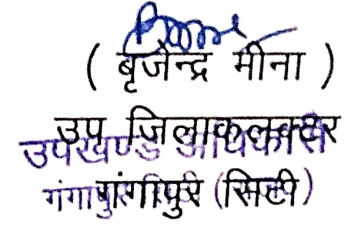 ( बृजेन्द्र मीना )
उप जिलाकलक्टर
उपखण्ड अधिकारी
गंगापुर (सिटी)